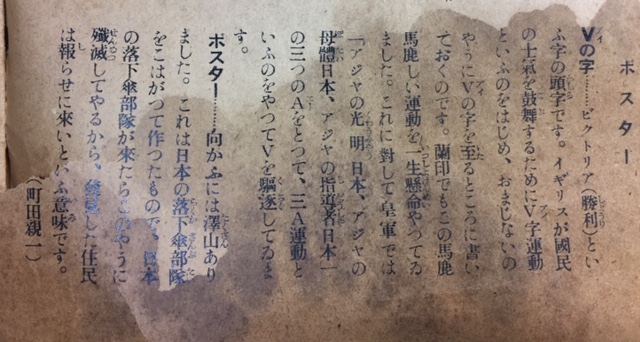 ポスター
Vの字……ビクトリア(勝利)とい
ふ字の頭字です。イギリスが國民
の士氣を鼓舞するためにV字運動
といふのをはじめ、おまじないの
やうにVの字を至るところに書い
ておくのです。蘭印でもこの馬鹿
馬鹿しい運動を一生懸命やつてゐ
ました。これに對して皇軍では
「アジヤの光明日本、アジヤの
母體日本、アジヤの指導者日本」
の三つのAをとつて、三A運動と
いふのをやつてVを驅逐してゐま
す。
ポスター……向かふには澤山あり
ました。これは日本の落下傘部隊
をこはがつて作つたもので、日本
の落下傘部隊が來たらこのやうに
殲滅してやるから、發見した住民
は報らせに來いといふ意味です。
(町田親一)